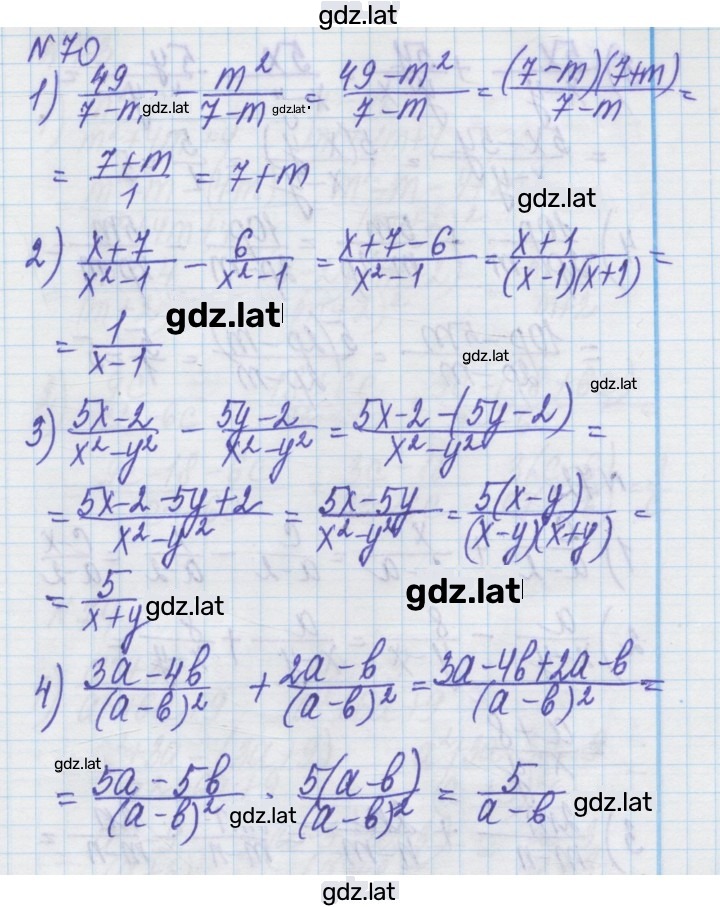 gdz.lat
№70
1) 49/(7-m) - m²/(7-m) = (49-m²)/(7-m) = (7-m)(7+m)/(7-m) =
gdz.lat gdz.lat
= (7+m)/1 = 7+m
gdz.lat
2) (x+7)/(x²-1) - 6/(x²-1) = (x+7-6)/(x²-1) = (x+1)/((x-1)(x+1)) =
gdz.lat
= 1/(x-1)
gdz.lat
gdz.lat
3) (5x-2)/(x²-y²) - (5y-2)/(x²-y²) = (5x-2-(5y-2))/(x²-y²) =
= (5x-2-5y+2)/(x²-y²) = (5x-5y)/(x²-y²) = 5(x-y)/((x-y)(x+y)) =
= 5/(x+y)
gdz.lat gdz.lat
4) (3a-4b)/(a-b)² + (2a-b)/(a-b)² = (3a-4b+2a-b)/(a-b)² =
gdz.lat
= (5a-5b)/(a-b)² · 5(a-b)/(a-b)² = 5/(a-b)
gdz.lat gdz.lat
gdz.lat